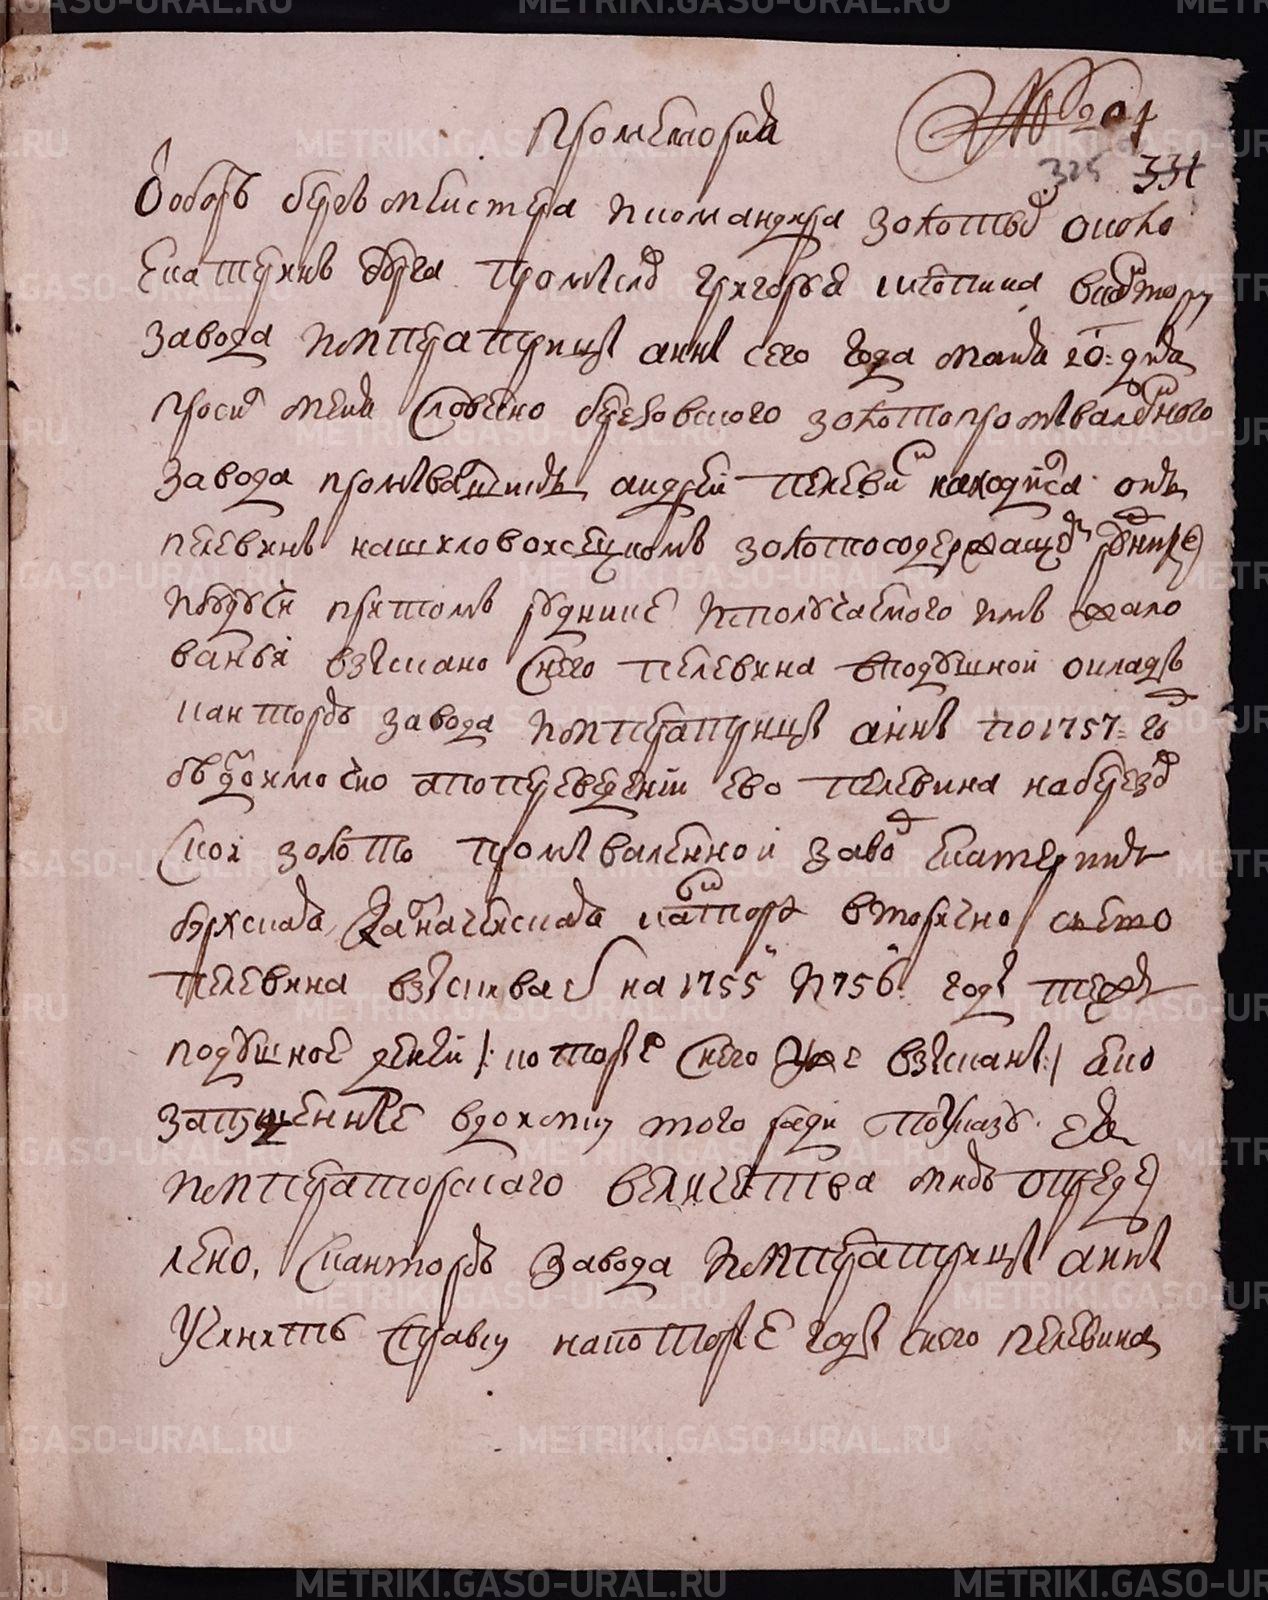 METRIKI.GASO-URAL.RU
№ 201
Промемория
325 331
От оберъ бергъ меистера и командира золотых около
Екатеринъ бурга промыслов григорья клеопина в кантору
завода императрицы анны сего года маия 20 дня
просил меня словесно березовского золотопромывалного
завода промывалщикъ андреи пелевин находился онъ
пелевинъ на шиловоисецкомъ золотосодержащем руднике
и будучи при томъ руднике ис получаемого имъ жало
ванья взыскано с него пелевина в подушной окладъ
в канторъ завода императрицы анны по 1757 год
бездоимочно а по переведении ево пелевина на березов
ской золото промываленной завод екатеринъ
бурхская казначейская кантора вторично с него
пелевина взыскивает на 1755 и 756 годы теж
подушное денги /: которые с него уже взысканы :/ яко
запущенные в доимку того ради по указу ея
императорского величества мною опреде
лено, с канторъ завода императрицы анны
учинить справку на которые годы с него пелевина